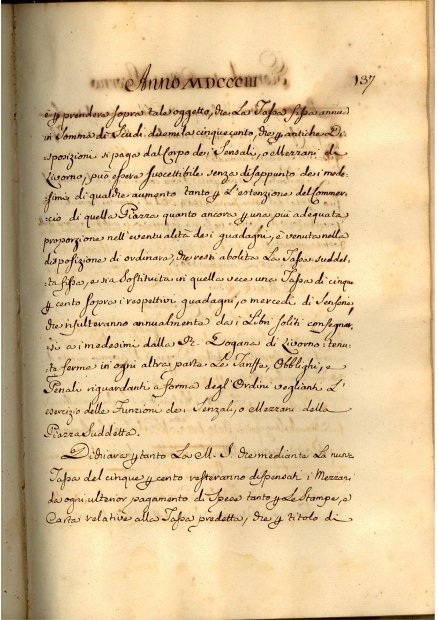 Anno MDCCCIII 137
e p prendere sopra tale oggetto, che La Tassa fissa annua
in Somma di Scudi duemila cinquecento, che p antiche Di-
sposizioni si paga dal Corpo dei Sensali, o Mezzani di
Livorno, può essere suscettibile senza disappunto dei mede-
simi di qualche aumento tanto p L'estenzione del Commer-
cio di quella Piazza quanto ancora p una più adequata
proporzione nell'eventualità dei guadagni, è venuta nella
disposizione di ordinare, che resti abolita La Tassa suddet-
ta fissa, e sia Sostituita in quella vece una Tassa di cinque
p cento sopra i respettivi guadagni, o mercedi di Senserie
che risulteranno annualmente dai Libri soliti consegnar-
si a i medesimi dalla R. Dogana di Livorno: tenu-
te ferme in ogni altra parte Le Tariffe, Obblighi, e
Penali riguardanti a forma degl'Ordini veglianti L'
esercizio delle Funzioni dei Senzali, o Mezzani della
Piazza Suddetta.
Dichiara p tanto La M. S. che mediante La nuova
Tassa del cinque p cento resteranno dispensati i Mezzani
da ogni ulterior pagamento di Spese tanto p Le Stampe, e
Carta relative alla Tassa predetta, che p titolo di